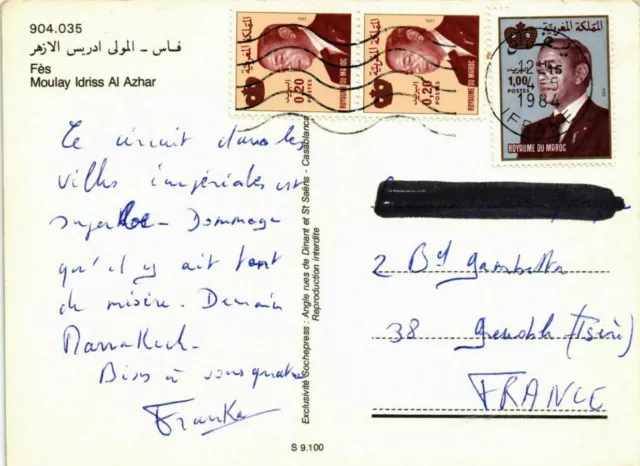 904.035
فاس - المولى ادريس الازهر
Fès
Moulay Idriss Al Azhar
Le circuit dans les
villes impériales est
superbe - Dommage
qu'il y ait tant
de misère. Demain
Marrakech.
Bises à vous quatre
Franka
Exclusivité Sochepress : Angle rues de Dinant et St Saëns - Casablanca
Reproduction interdite
S 9.100
المملكة المغربية
البريد
0,20
POSTES
ROYAUME DU MAROC
المملكة المغربية
البريد
0,20
POSTES
ROYAUME DU MAROC
المملكة المغربية
البريد
1,00
POSTES
ROYAUME DU MAROC
1984
2 Bd Gambetta
38 Grenoble (Isère)
FRANCE